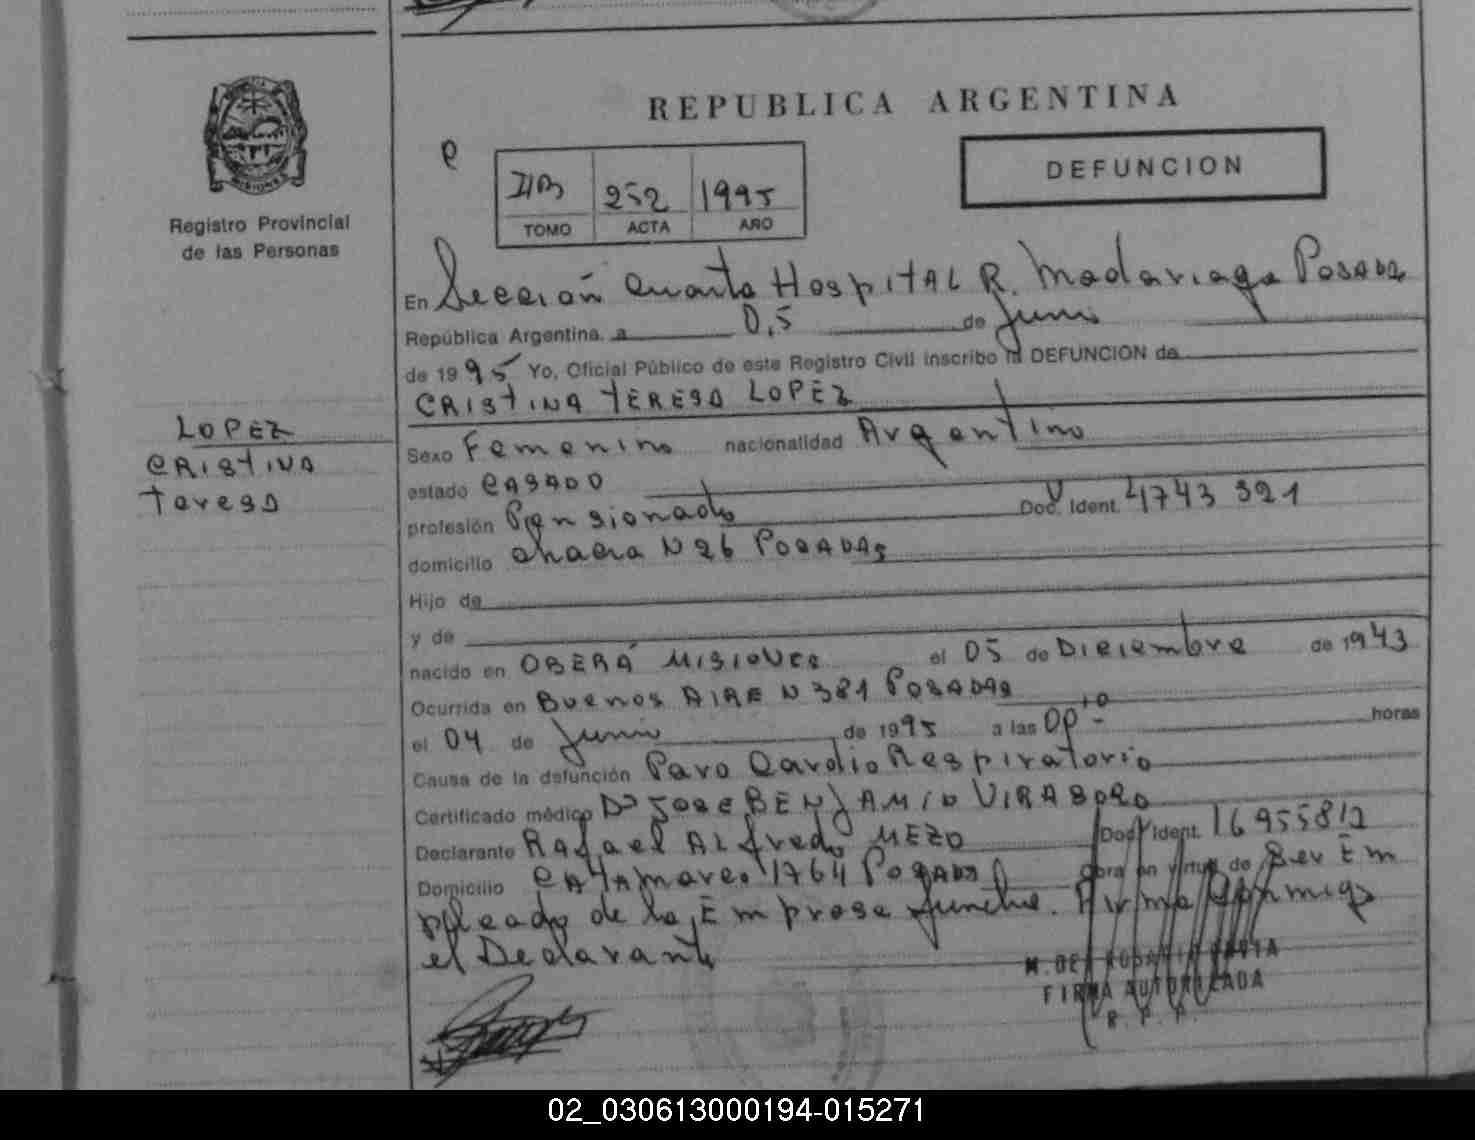 REPUBLICA ARGENTINA
DEFUNCION
MISIONES
Registro Provincial
de las Personas
e
IIB 252 1995
TOMO ACTA AÑO
En Sección Cuarta Hospital R. Madariaga Posadas
República Argentina, a 05 de Junio
de 1995 Yo, Oficial Público de este Registro Civil inscribo la DEFUNCION de
CRISTINA TERESA LOPEZ
LOPEZ
CRISTINA
Teresa
Sexo Femenino nacionalidad Argentino
estado CASADO
profesión Pensionado Doc. Ident. 4743 321
domicilio chacra N 26 POSADAS
Hijo de
y de
nacido en OBERÁ MISIONES el 05 de Diciembre de 1943
Ocurrida en Buenos AIRE N 381 POSADAS
el 04 de Junio de 1995 a las horas
Causa de la defunción Paro Cardio Respiratorio
Certificado médico Dr JOSE BENJAMIN VIRASORO
Declarante Rafael Alfredo MEZO Doc. Ident. 16955812
Domicilio CATAMARCA 1764 POSADAS Obra en virtud de Ser Em
pleado de la Empresa funebre. Firma Conmigo
el Declarante
FIRMA AUTORIZADA
R. P. P.
02_030613000194-015271